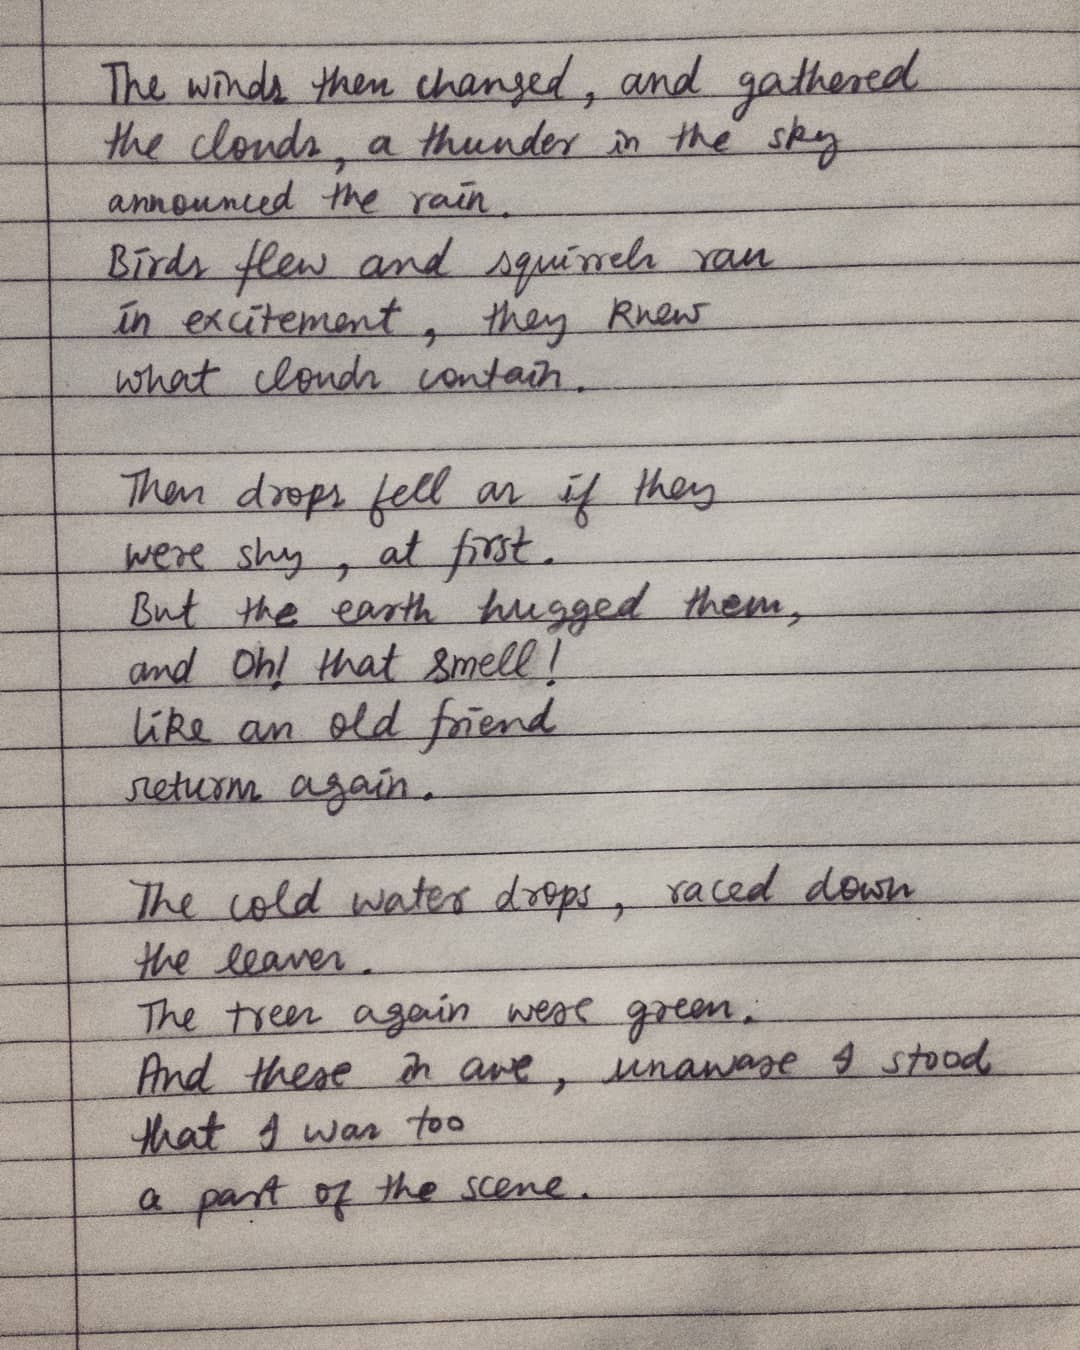 The winds then changed, and gathered
the clouds, a thunder in the sky
announced the rain.
Birds flew and squirrels ran
in excitement, they knew
what clouds contain.
Then drops fell as if they
were shy, at first.
But the earth hugged them,
and Oh! that smell!
like an old friend
return again.
The cold water drops, raced down
the leaves.
The trees again were green.
And there in awe, unaware I stood
that I was too
a part of the scene.